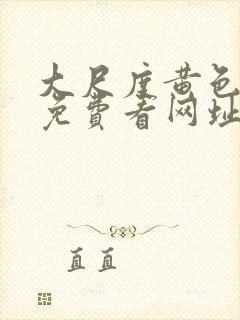 大尺度黄色
免费看网址
直直